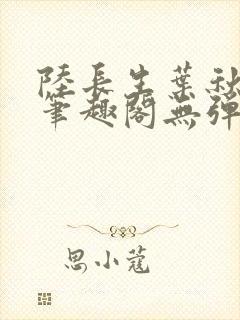 陸長生葉秋
筆趣閣無彈
思小蔻